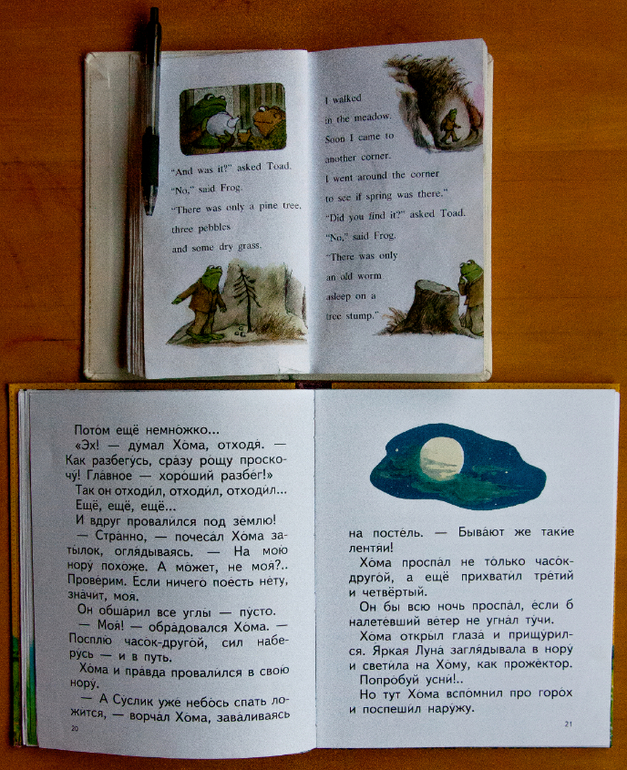 "And was it?" asked Toad.
"No," said Frog.
"There was only a pine tree,
three pebbles
and some dry grass.
I walked
in the meadow.
Soon I came to
another corner.
I went around the corner
to see if spring was there."
"Did you find it?" asked Toad.
"No," said Frog.
"There was only
an old worm
asleep on a
tree stump."
Пото́м ещё немно́жко...
«Эх! — ду́мал Хо́ма, отходя́. —
Как разбегу́сь, сра́зу ро́щу проско-
чу́! Гла́вное — хоро́ший разбе́г!»
Так он отходи́л, отходи́л, отходи́л...
Ещё, ещё, ещё...
И вдруг провали́лся под зе́млю!
— Стра́нно, — почеса́л Хо́ма за-
ты́лок, огля́дываясь. — На мою́
нору́ похоже. А мо́жет, не моя́?..
Прове́рим. Если ничего́ пое́сть не́ту,
зна́чит, моя.
Он обша́рил все углы́ — пу́сто.
— Моя́! — обра́довался Хо́ма. —
Посплю́ часо́к-друго́й, сил набе-
ру́сь — и в путь.
Хо́ма и пра́вда провали́лся в свою́
нору́.
— А Су́слик уже́ небо́сь спать ло-
жи́тся, — ворча́л Хо́ма, зава́ливаясь
20
на посте́ль. — Быва́ют же таки́е
лентя́и!
Хо́ма проспа́л не то́лько часо́к-
друго́й, а ещё прихвати́л тре́тий
и четвёртый.
Он бы всю ночь проспа́л, е́сли б
налете́вший ве́тер не угна́л ту́чи.
Хо́ма откры́л глаза́ и прищу́рил-
ся. Я́ркая Луна́ загля́дывала в нору́
и свети́ла на Хо́му, как проже́ктор.
Попро́буй усни́!..
Но тут Хо́ма вспо́мнил про горо́х
и поспеши́л нару́жу.
21